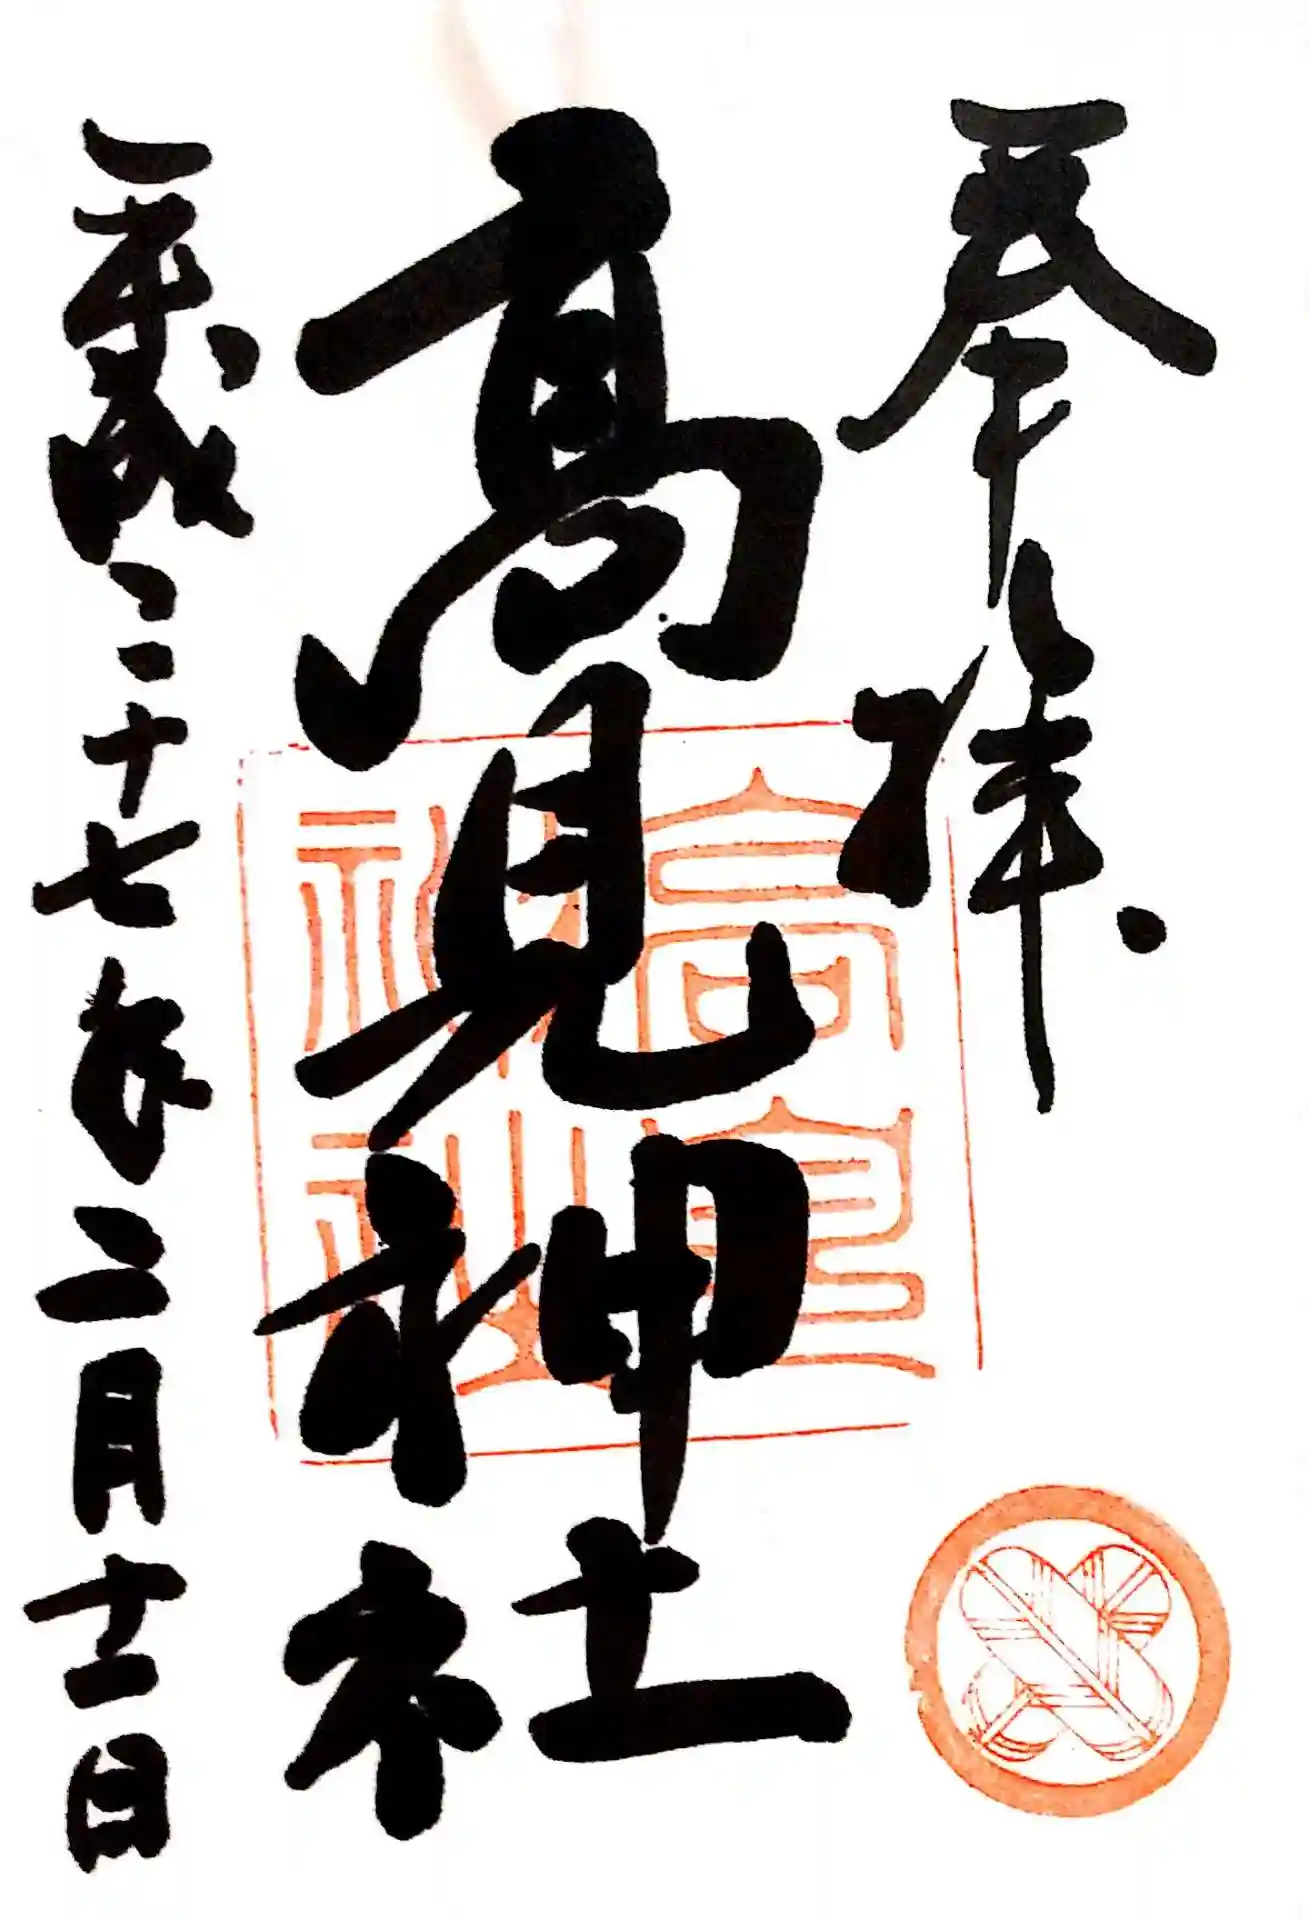 奉拝
高見神社
高見神社
平成二十七年二月十一日